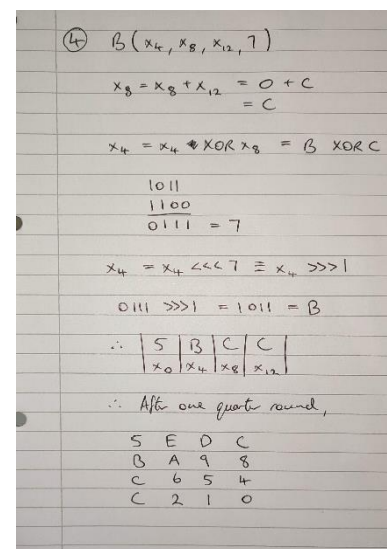 ④ B(x₄, x₈, x₁₂, 7)
x₈ = x₈ + x₁₂ = 0 + C
= C
x₄ = x₄ XOR x₈ = B XOR C
1011
1100
0111 = 7
x₄ = x₄ <<< 7 ≡ x₄ >>> 1
0111 >>> 1 = 1011 = B
∴ | 5 | B | C | C |
| x₀ | x₄ | x₈ | x₁₂ |
∴ After one quarter round,
5 E D C
B A 9 8
C 6 5 4
C 2 1 0